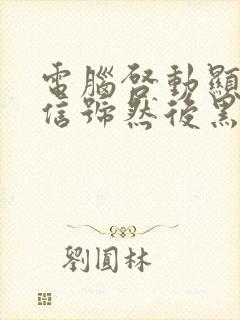 電腦啓動顯
信號然後黑
劉圓林